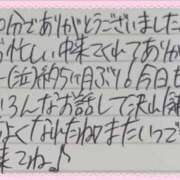 0分でありがとうございました
お忙しい中来てくれてありが
約5ヶ月ぶり!今日も
いろんなお話して沢山
よくなれたねまたいつで
来てね♪